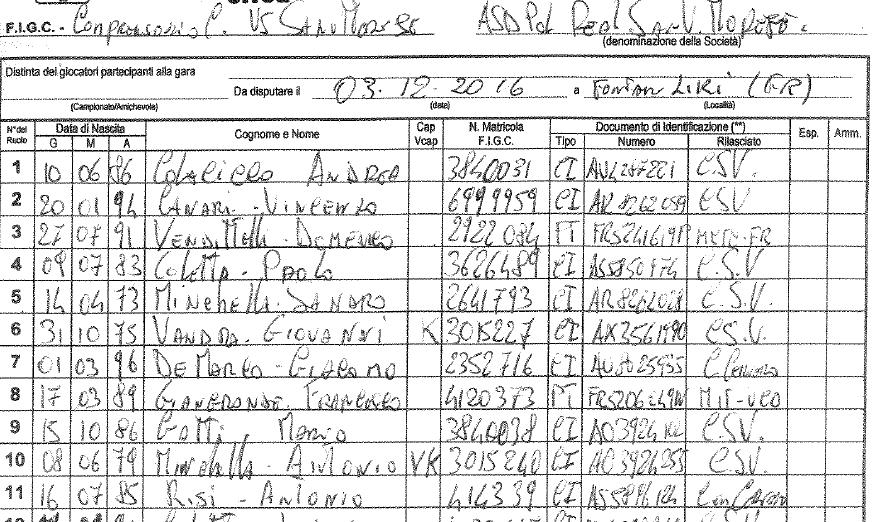 F.I.G.C. - Comprensorio C. VS San Morese ASD Pol Real San V.
(denominazione della Società)
Distinta dei giocatori partecipanti alla gara
Da disputare il 03-12-2016 a Fontan Liri (FR)
(Campionato/Amichevole) (data) (Località)
N° del Ruolo Data di Nascita Cognome e Nome Cap Vcap N. Matricola F.I.G.C. Documento di Identificazione (**) Esp. Amm.
G M A Tipo Numero Rilasciato
1 10 06 86 Andrea 3840031 CI C.S.V.
2 20 01 94 Canari - Vincenzo 6999959 CI CSV
3 27 07 91 Vendittelli - Domenico 2922084 PT FR5241619P MCTC-FR
4 09 07 83 Coletta - Paolo 3626489 CI C.S.V
5 14 04 73 Minchella - Sandro 2641793 CI C.S.V.
6 31 10 75 Vandra - Giovanni K 3015227 CI AX3561990 CS.V.
7 01 03 96 De Marco - Giacomo 2352716 CI AU8025955
8 17 03 89 Francesco 4120373 PT MIT-UCO
9 15 10 86 Gatti, Mario 3840038 CI C.S.V.
10 08 06 79 Minchella - Antonio VK 3015240 CI AO3924255 C.S.V.
11 16 07 85 Risi - Antonio 414339 CI